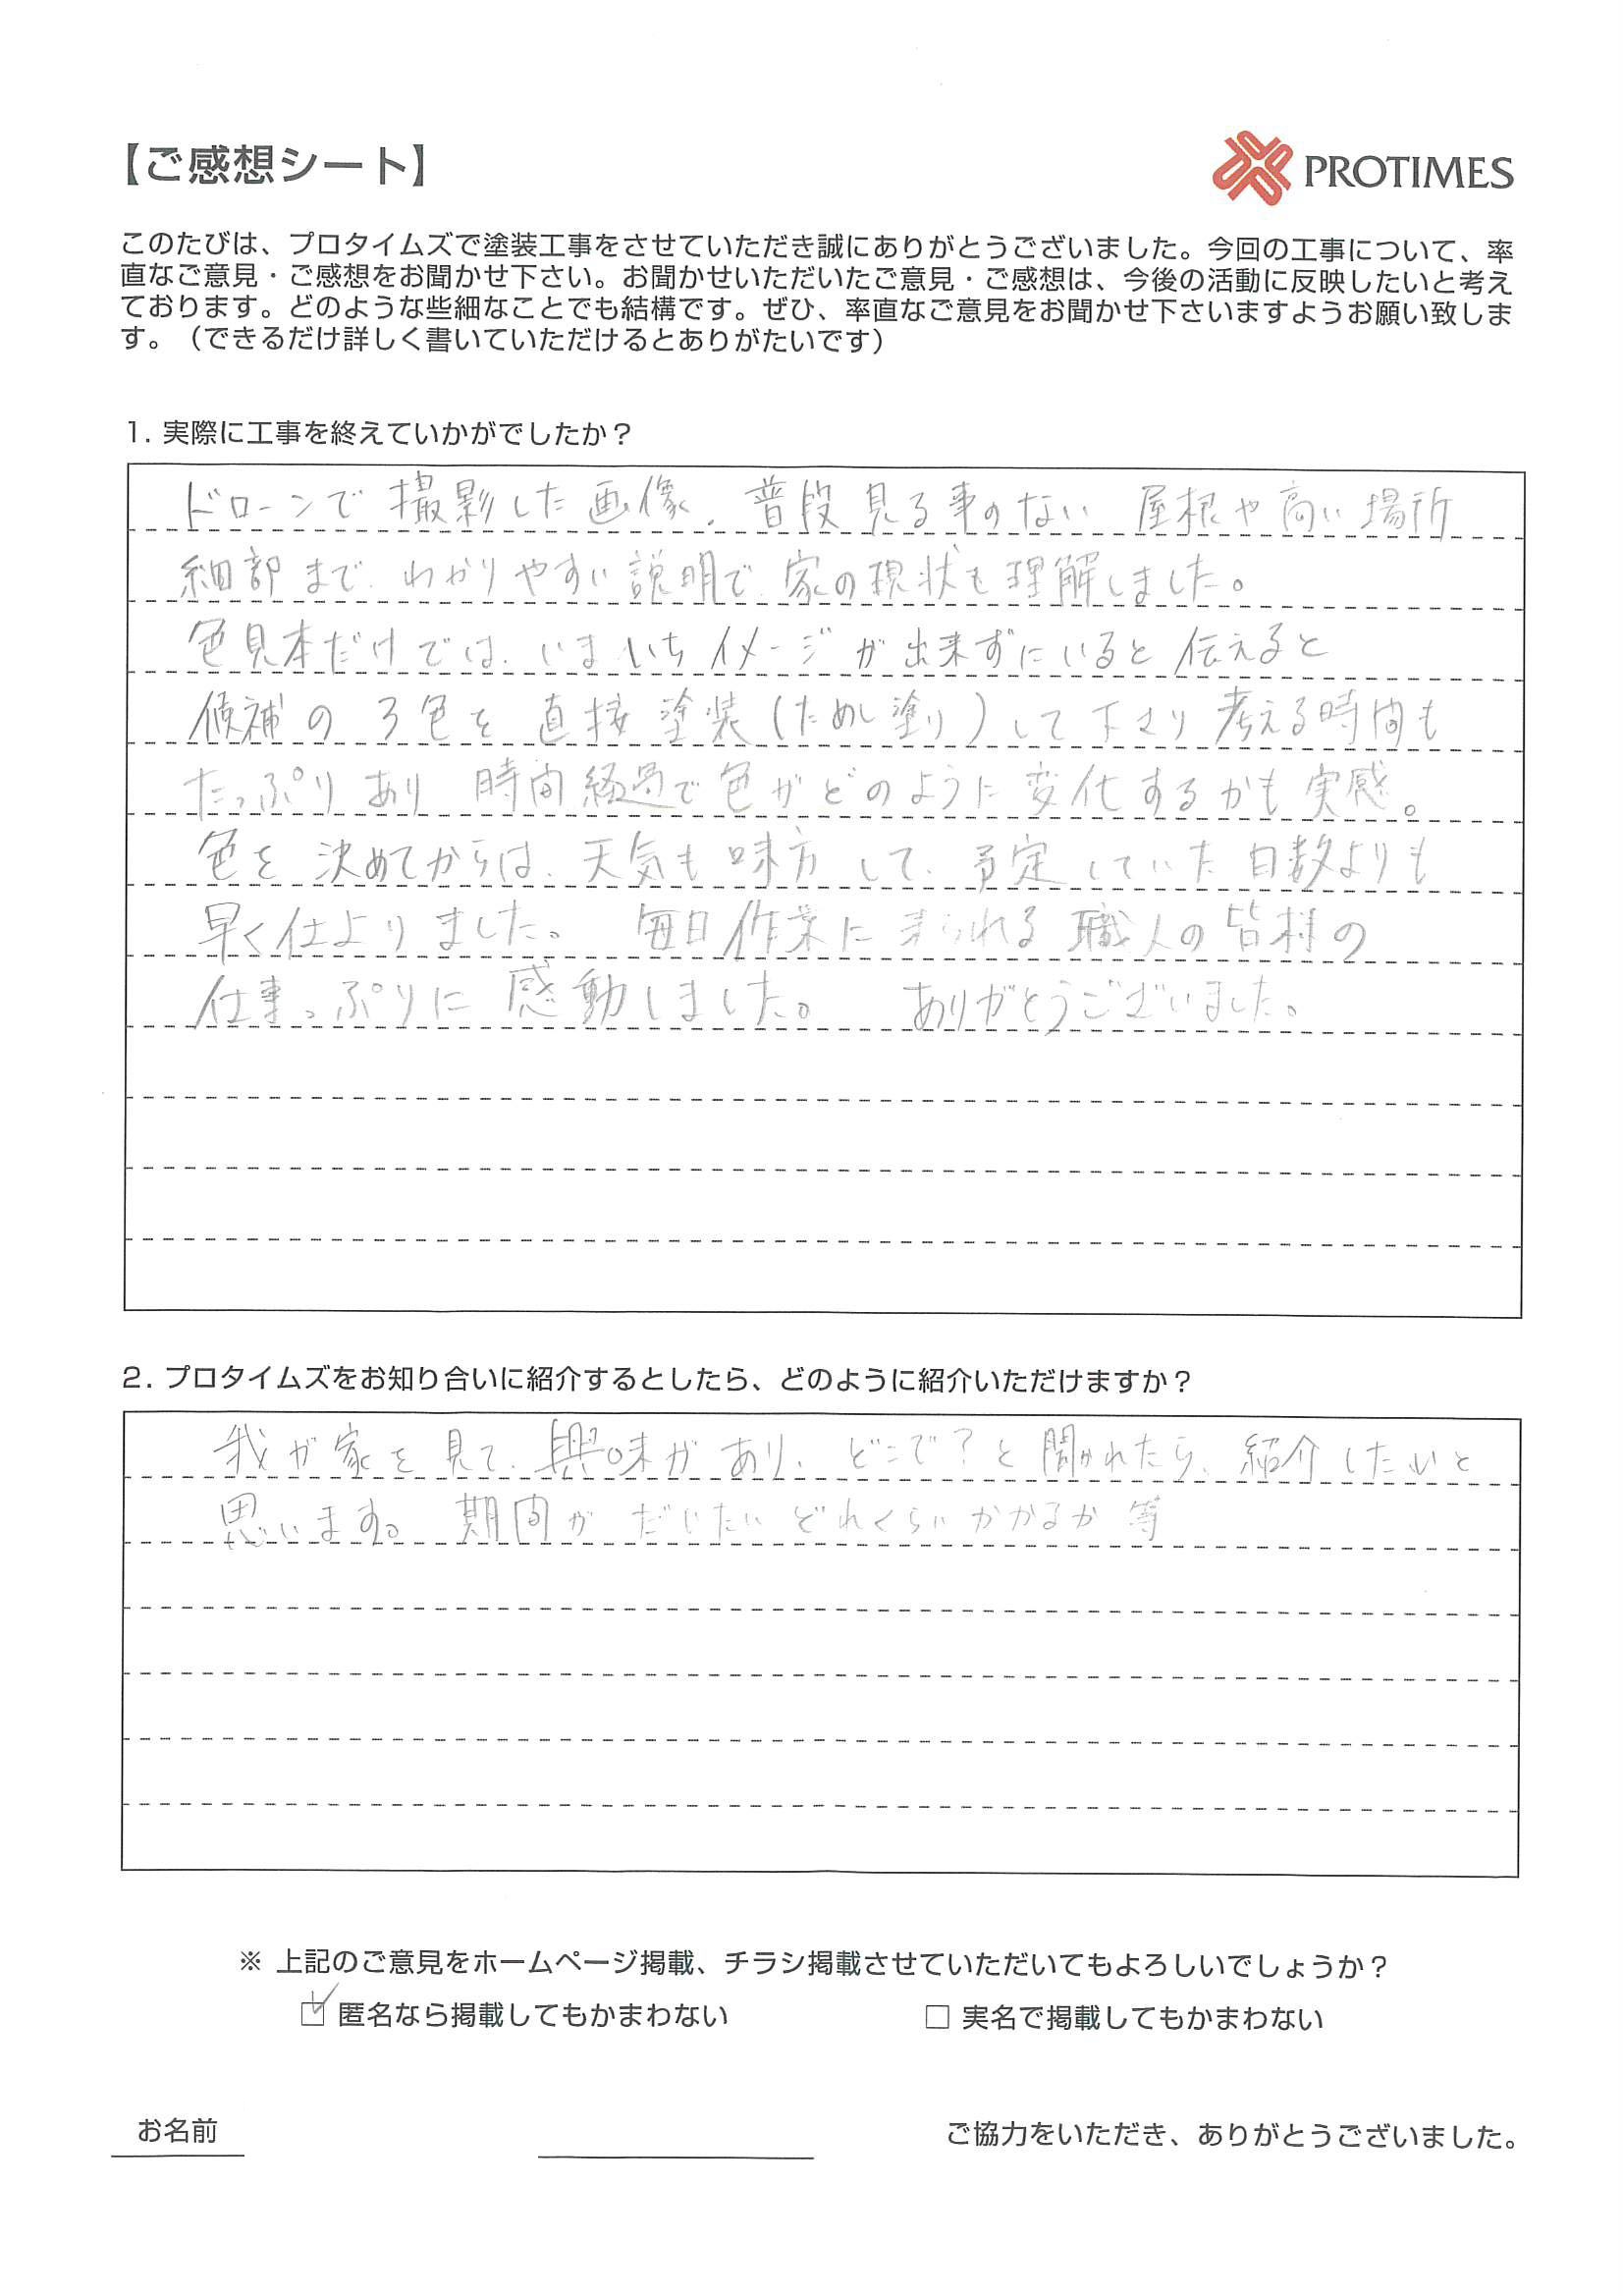 【ご感想シート】
PROTIMES
このたびは、プロタイムズで塗装工事をさせていただき誠にありがとうございました。今回の工事について、率
直なご意見・ご感想をお聞かせ下さい。お聞かせいただいたご意見・ご感想は、今後の活動に反映したいと考え
ております。どのような些細なことでも結構です。ぜひ、率直なご意見をお聞かせ下さいますようお願い致しま
す。（できるだけ詳しく書いていただけるとありがたいです）
1. 実際に工事を終えていかがでしたか？
ドローンで撮影した画像、普段見る事のない 屋根や高い場所
細部まで、わかりやすい説明で、家の現状も理解しました。
色見本だけでは、いまいちイメージが出来ずにいると伝えると
候補の3色を直接塗装(ためし塗り)して下さり考える時間も
たっぷりあり 時間経過で色がどのように変化するかも実感。
色を決めてからは、天気も味方して、予定していた日数よりも
早く仕上りました。 毎日作業に来られる職人の皆様の
仕事っぷりに感動しました。 ありがとうございました。
2. プロタイムズをお知り合いに紹介するとしたら、どのように紹介いただけますか？
我が家を見て、興味があり、どこで？と聞かれたら、紹介したいと
思います。期間がだいたいどれくらいかかるか等
※ 上記のご意見をホームページ掲載、チラシ掲載させていただいてもよろしいでしょうか？
☑ 匿名なら掲載してもかまわない □ 実名で掲載してもかまわない
お名前 ご協力をいただき、ありがとうございました。